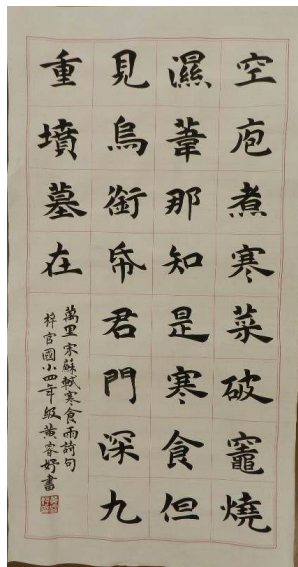 空庖煮寒菜破竈燒
濕葦那知是寒食但
見烏銜帋君門深九
重墳墓在
萬里宋蘇軾寒食雨詩句
梓官國小四年級黃容妤書